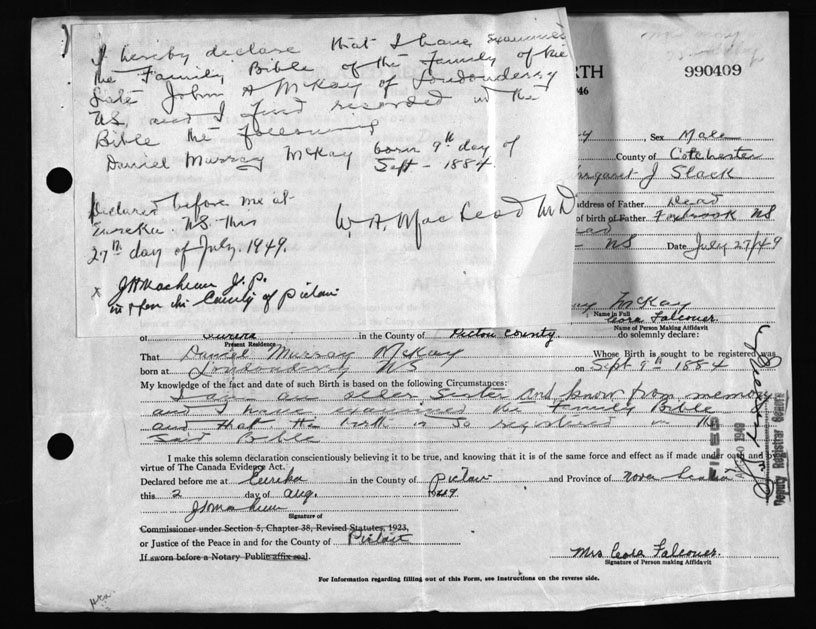 I hereby declare that I have examined
the Family Bible of the Family of the
late John A McKay of Londonderry
NS, and I find recorded in the
Bible the following
Daniel Murray McKay born 9th day of
Sept - 1884.
Declared before me at
Eureka NS. this
27th day of July. 1949.
W. A. MacLeod MD
J. P.
x in & for the County of Pictou
RTH
946
990409
y, Sex Male
County of Colchester
rgaret J Slack
address of Father Dead
of birth of Father Foxbrook NS
ead
- NS Date July 27/49
ay McKay
Name in Full
Ceora Falconer
Name of Person Making Affidavit
of Eureka in the County of Pictou County. do solemnly declare:
Present Residence
That Daniel Murray McKay Whose Birth is sought to be registered was
born at Londonderry NS on Sept 9th 1884
My knowledge of the fact and date of such Birth is based on the following Circumstances:
I am an older Sister and know from memory
and I have examined the Family Bible
and that the birth is so registered in the
Said Bible
I make this solemn declaration conscientiously believing it to be true, and knowing that it is of the same force and effect as if made under oath and by
virtue of The Canada Evidence Act.
Declared before me at Eureka in the County of Pictou and Province of Nova Scotia
this 2 day of Aug. 1949.
Signature of
Commissioner under Section 5, Chapter 38, Revised Statutes, 1923,
or Justice of the Peace in and for the County of Pictou
If sworn before a Notary Public affix seal.
Mrs Ceora Falconer
Signature of Person making Affidavit
For Information regarding filling out of this Form, see Instructions on the reverse side.
FILED
Deputy Registrar General